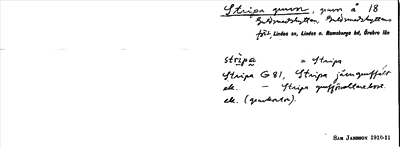 Stripa gruva, gruva å 18
Guldsmedshyttan, Guldsmedshyttans
förs., Lindes sn, Lindes o. Ramsbergs bd, Örebro län
strìpa = Stripa
Stripa G 81, Stripa järngruvfält
ek. — Stripa gruvförvaltarebost.
ek. (gruvkartor).
SAM JANSSON 1910-11